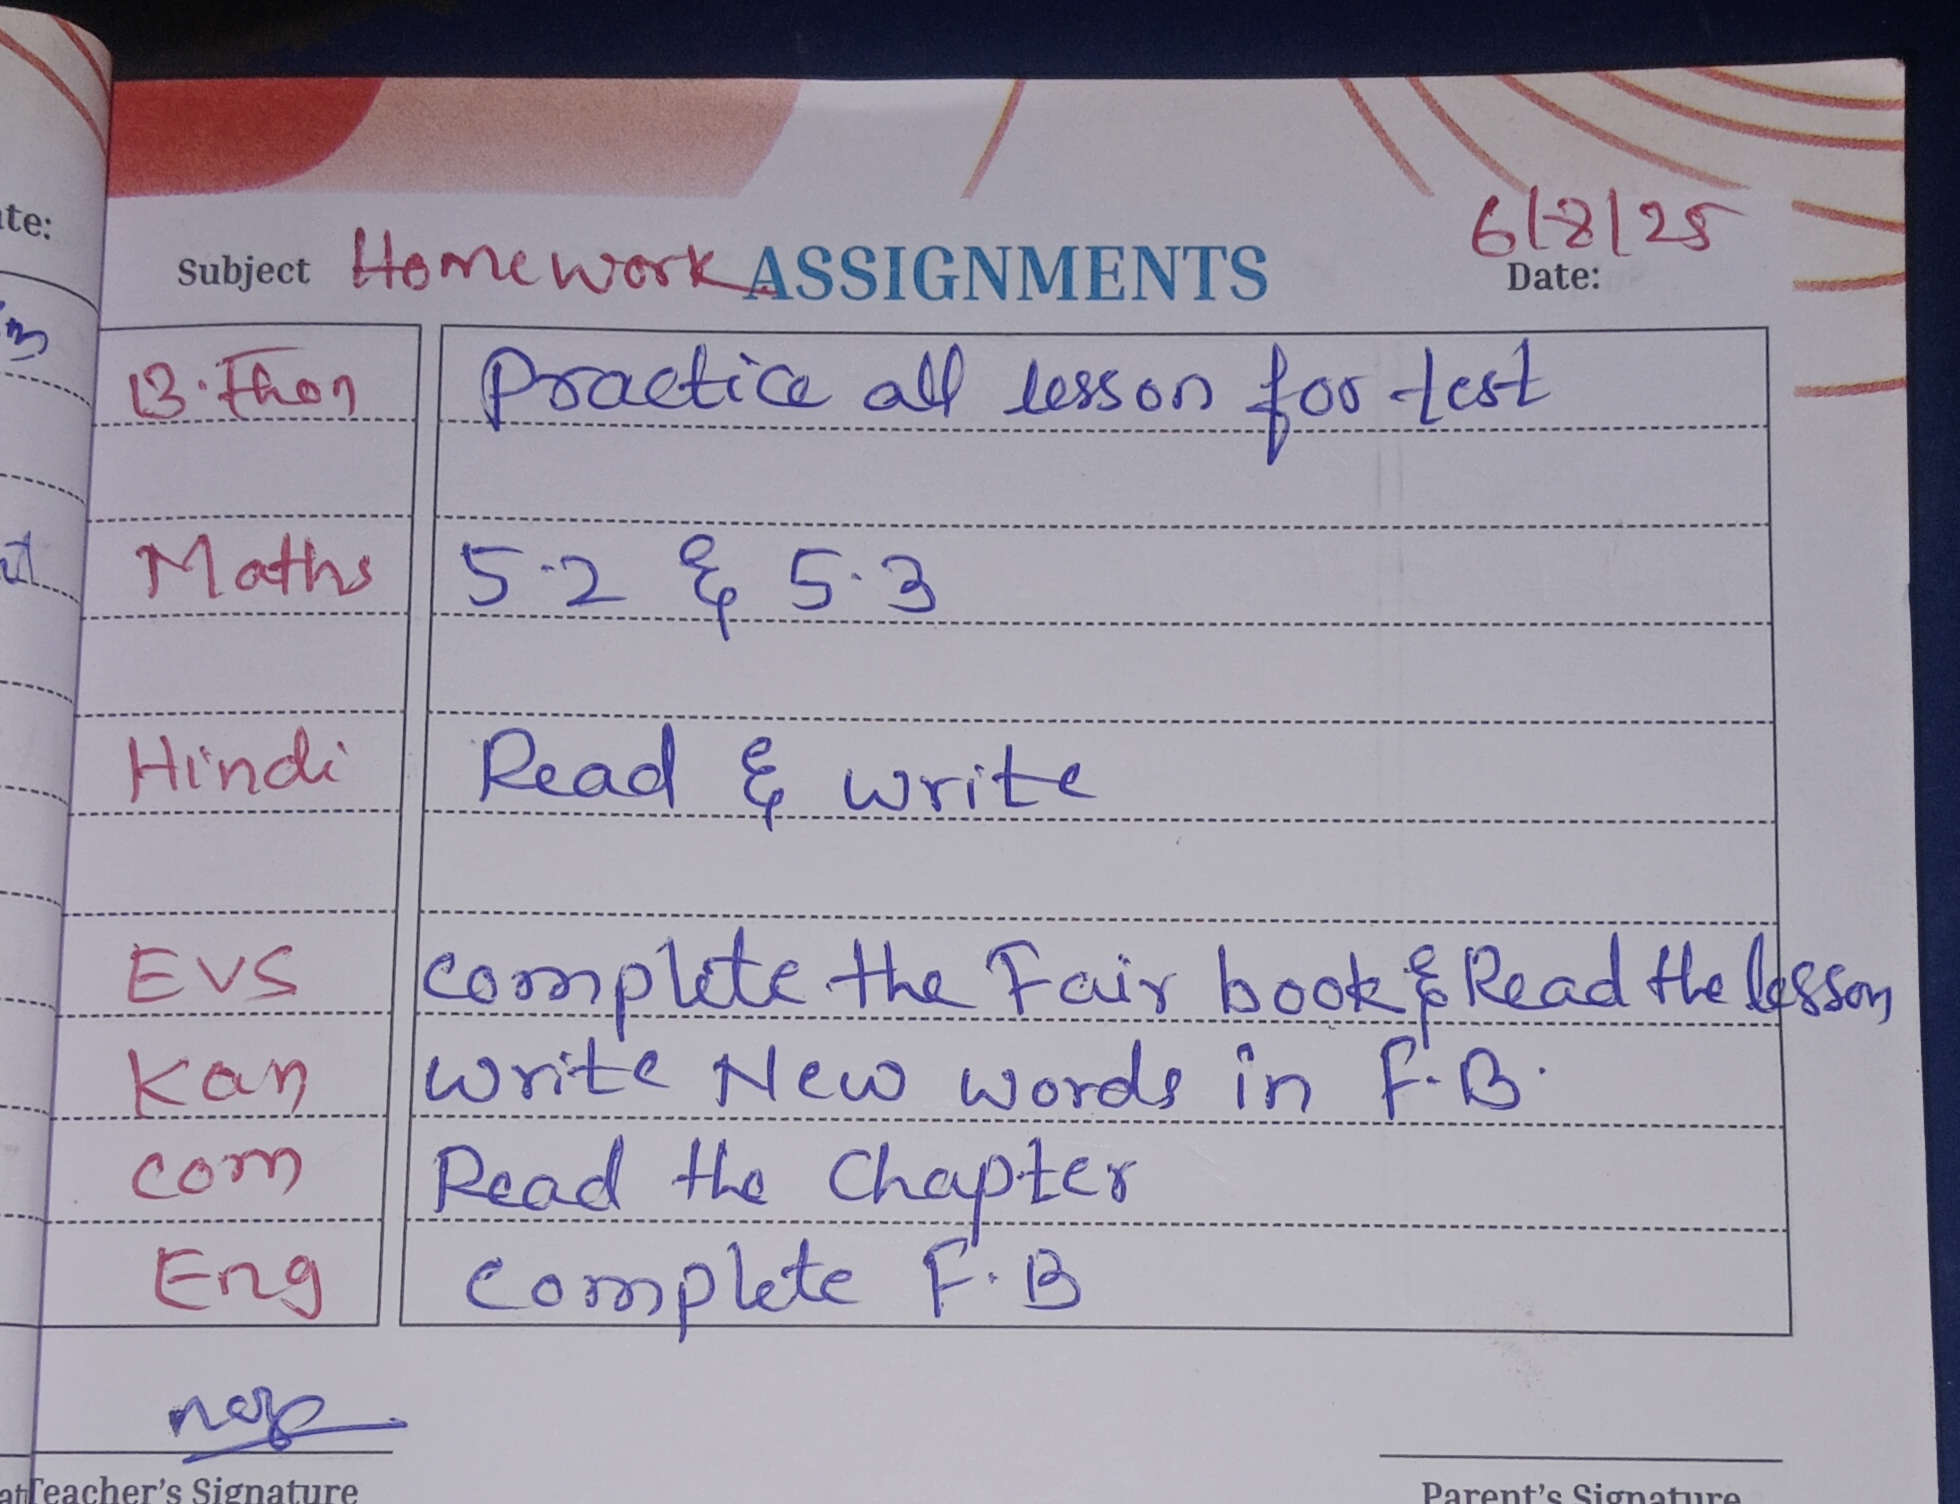 6/8/25
Subject Homework ASSIGNMENTS Date:
B.Fhon Practice all lesson for test
Maths 5.2 & 5.3
Hindi Read & write
EVS complete the Fair book & Read the lesson
Kan write New words in F.B.
com Read the Chapter
Eng complete F.B
Teacher's Signature Parent's Signature